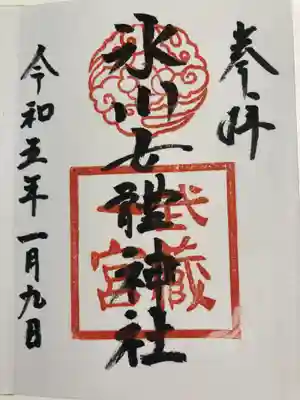 奉拝
氷川女體神社
武藏
一宮
令和五年一月九日